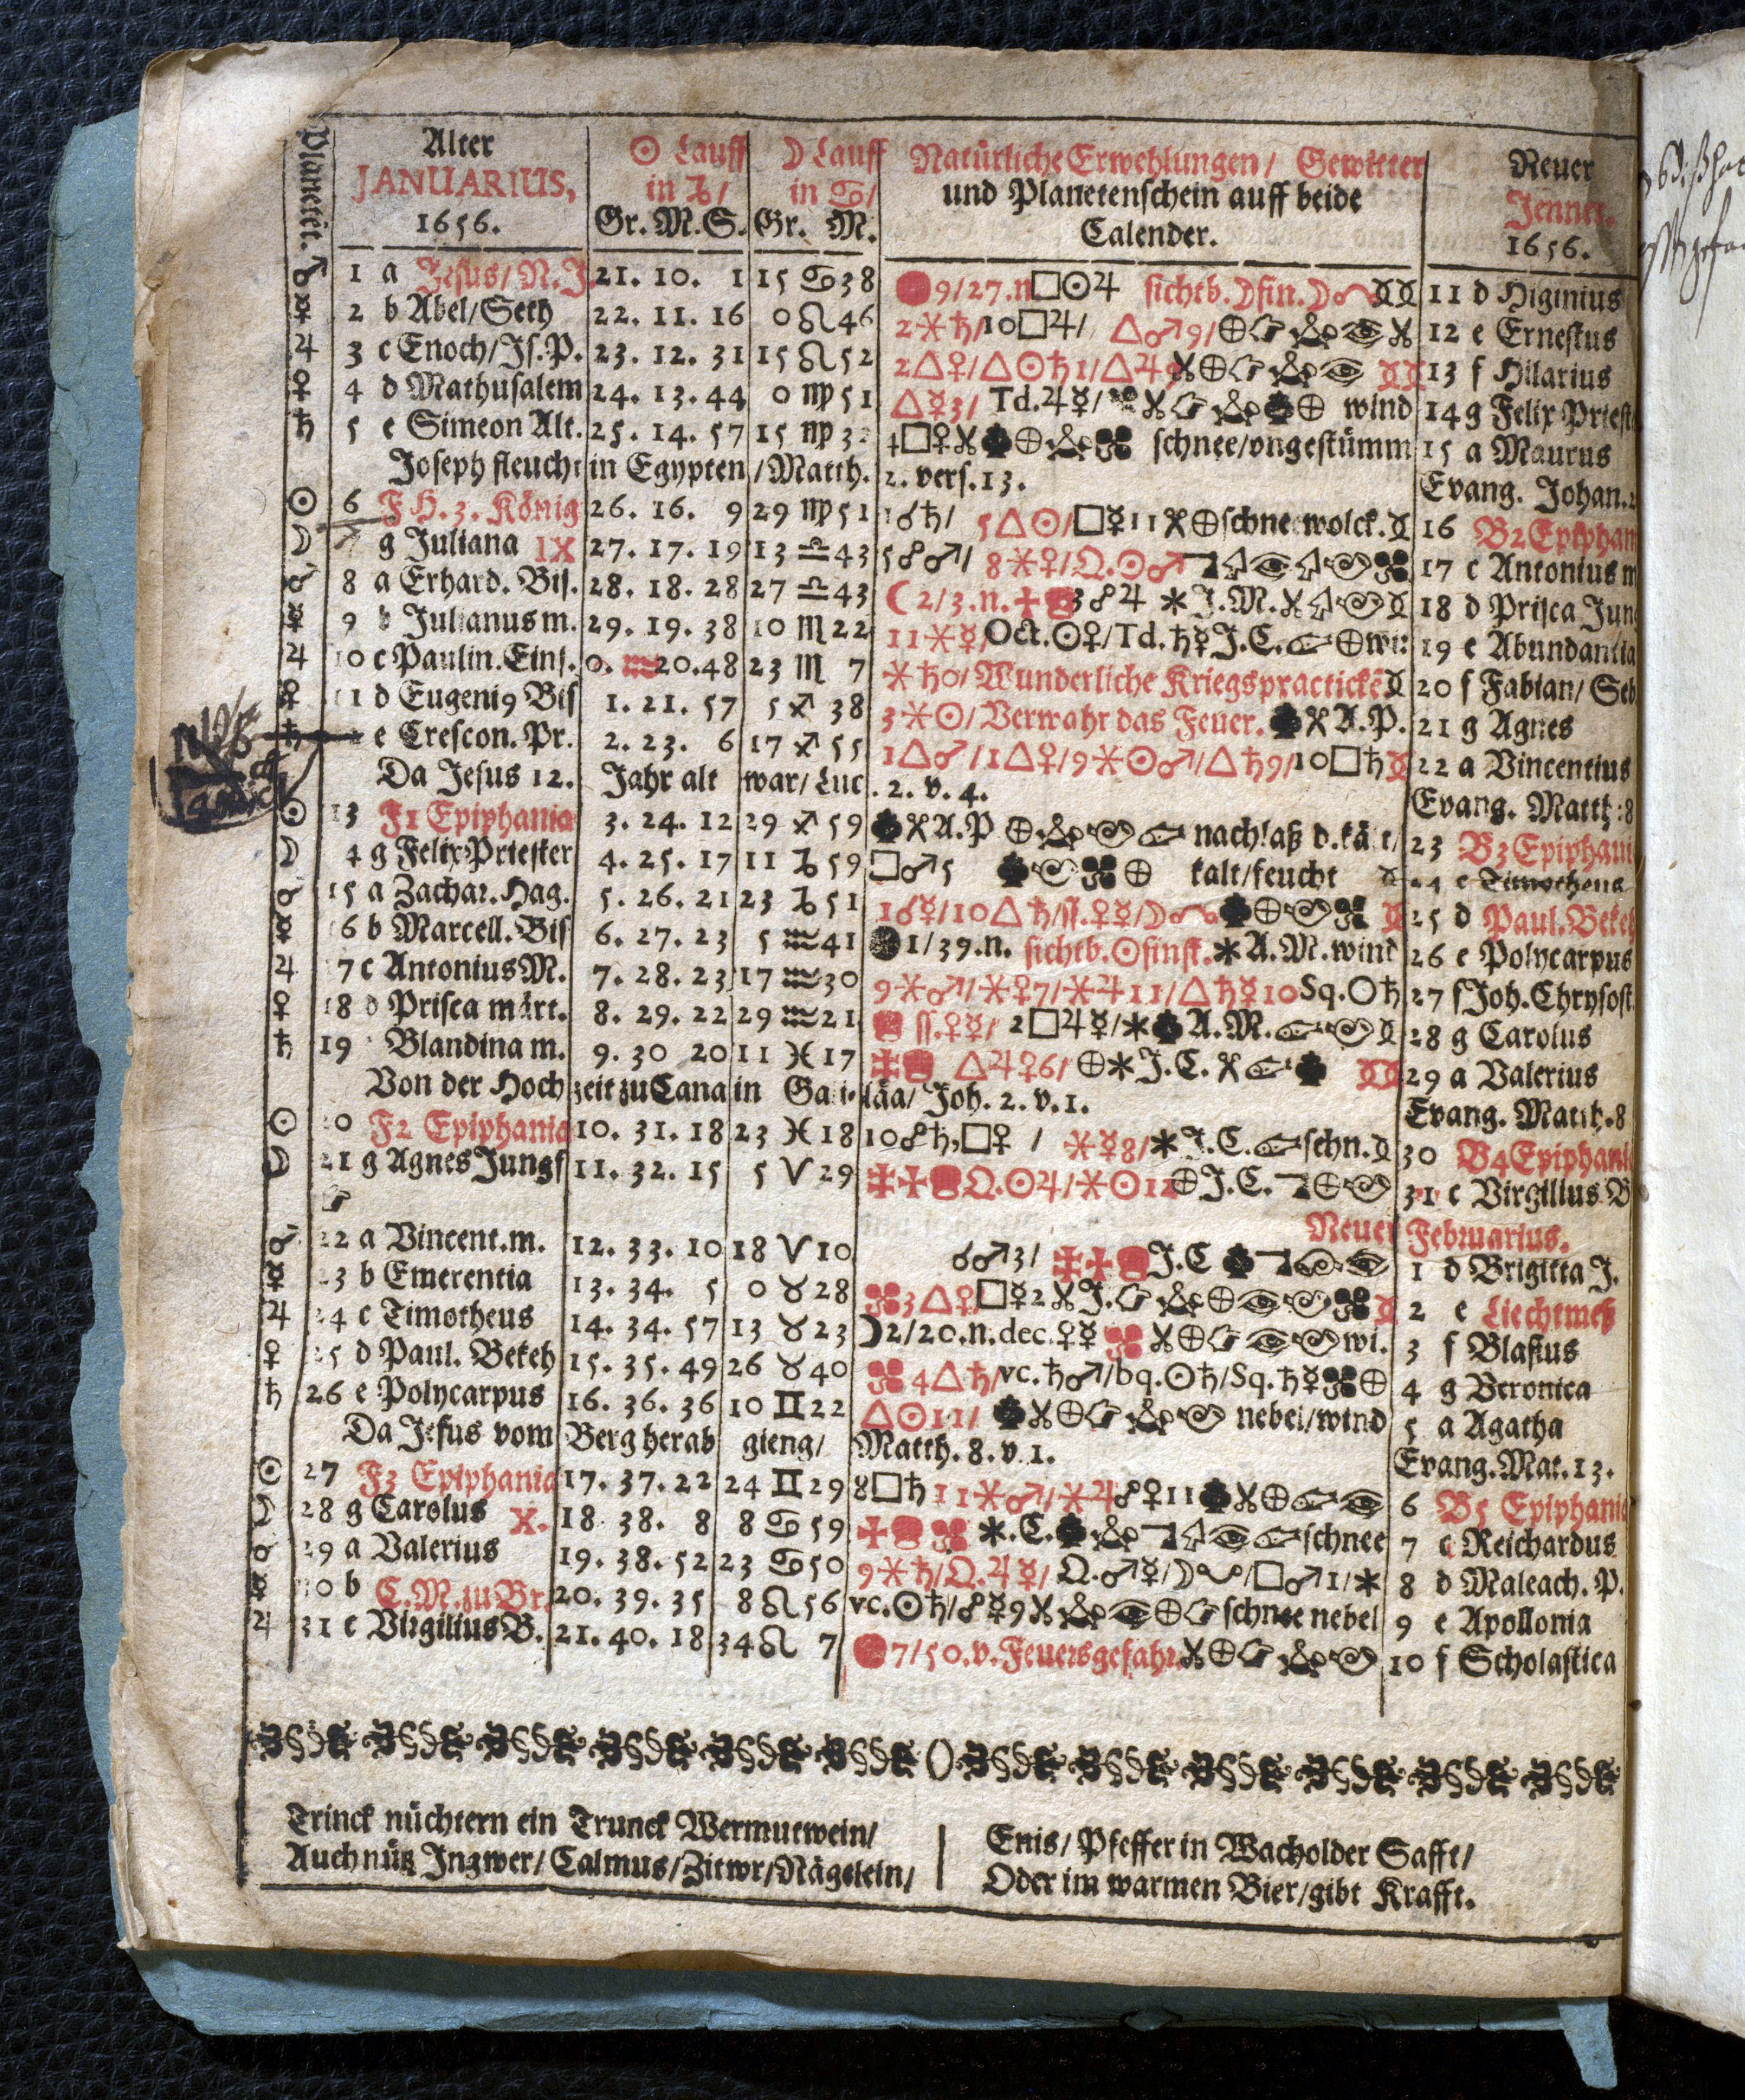 Planeten.
Alter
JANUARIUS,
1656.
☉ Lauff
in ♑/
Gr. M. S.
☽ Lauff
in ♋/
Gr. M.
Natürliche Erwehlungen/ Gewitter
und Planetenschein auff beide
Calender.
Neuer
Jenner.
1656.
♂ 1 a Jesus/ N. J. 21. 10. 1 15 ♋ 38 9/27.n □☉♃ sichtb.☽fin.☽ 11 d Higinius
☿ 2 b Abel/Seth 22. 11. 16 0 ♌ 46 2⚹♄/10□♃/ △♂9/⊕ 12 e Ernestus
♃ 3 c Enoch/Js.P. 23. 12. 31 15 ♌ 52 2△♀/△☉♄1/△♃ 13 f Hilarius
♀ 4 d Mathusalem 24. 13. 44 0 ♍ 51 △☿3/ Td.♃☿/ ⊕ wind 14 g Felix Priest
♄ 5 e Simeon Alt. 25. 14. 57 15 ♍ □♀ ⊕ schnee/ungestümm 15 a Maurus
Joseph fleucht in Egypten/Matth. 2. vers.13. Evang. Johan.
☉ 6 F H. 3. König 26. 16. 9 29 ♍ 51 1☌♄/ 5△☉/□☿11 ⊕ schnee wolck. 16 B2 Epiphan
☽ g Juliana IX 27. 17. 19 13 ♎ 43 5☍♂/ 8⚹♀/Ω.☉♂ 17 c Antonius m
♂ 8 a Erhard. Bis. 28. 18. 28 27 ♎ 43 ☾2/3.n. 3☍♃ ✱ J.M. 18 d Prisca Jun
☿ 9 b Julianus m. 29. 19. 38 10 ♏ 22 11⚹☿/Oct.☉♀/Td.♄☿ J.C. ⊕ 19 e Abundantia
♃ 10 c Paulin. Eins. 0. ♒ 20. 48 23 ♏ 7 ⚹♄0/ Wunderliche Kriegspractickē 20 f Fabian/ Seb
♀ 11 d Eugeni9 Bis 1. 21. 57 5 ♐ 38 3⚹☉/ Verwahr das Feuer. A.P. 21 g Agnes
♄ e Crescon. Pr. 2. 23. 6 17 ♐ 55 1△♂/1△♀/9⚹☉♂/△♄9/10□♄ 22 a Vincentius
Da Jesus 12. Jahr alt war/ Luc. 2. v. 4. Evang. Matth: 8
☉ 13 F1 Epiphania 3. 24. 12 29 ♐ 59 A.P ⊕ 23 B3 Epiphani
☽ 4 g Felix Priester 4. 25. 17 11 ♑ 59 □♂5 ⊕ kalt/feucht 4 c Timotheus
♂ 15 a Zachar. Hag. 5. 26. 21 23 ♑ 51 1☌☿/10△♄/ſſ.♀☿/☽ ⊕ 25 d Paul. Bekeh
☿ 6 b Marcell. Bis 6. 27. 23 5 ♒ 41 1/39.n. sichtb.☉finst. ✱ A.M. wind 26 e Polycarpus
♃ 7 c Antonius M. 7. 28. 23 17 ♒ 30 9⚹♂/⚹♀7/⚹♃11/△♄☿10 Sq.☉♄ 27 f Joh. Chrysost
♀ 18 d Prisca märt. 8. 29. 22 29 ♒ 21 ſſ.♀☿/ 2□♃☿/✱ A.M. 28 g Carolus
♄ 19 Blandina m. 9. 30 20 11 ♓ 17 △♃♀6/ ⊕✱ J.C. 29 a Valerius
Von der Hochzeit zu Cana in Galiläa/ Joh. 2. v.1. Evang. Matth. 8
☉ 0 F2 Epiphania 10. 31. 18 23 ♓ 18 10☍♄,□♀ / ⚹☿8/✱ J.C. schn. 30 B4 Epiphani
☽ 21 g Agnes Jungf 11. 32. 15 5 ♈ 29 Ω.☉♃/⚹☉12 ⊕ J.C. ⊕ 31 c Virgilius B
Neuer Februarius.
♂ 22 a Vincent. m. 12. 33. 10 18 ♈ 10 ☌♂3/ J.C 1 d Brigitta J.
☿ 23 b Emerentia 13. 34. 5 0 ♉ 28 3△♀ □☿2 J. ⊕ 2 e Liechtmeß
♃ 24 c Timotheus 14. 34. 57 13 ♉ 23 ☽2/20.n.dec.♀☿ ⊕ wi. 3 f Blasius
♀ 25 d Paul. Bekeh 15. 35. 49 26 ♉ 40 4△♄/vc.♄♂/bq.☉♄/Sq.♄☿ ⊕ 4 g Veronica
♄ 26 e Polycarpus 16. 36. 36 10 ♊ 22 △☉11/ ⊕ nebel/wind 5 a Agatha
Da Jesus vom Berg herab gieng/ Matth. 8. v. 1. Evang. Mat. 13.
☉ 27 F3 Epiphania 17. 37. 22 24 ♊ 29 8□♄ 11⚹♂/⚹♃ ☍♀11 ⊕ 6 B5 Epiphania
☽ 28 g Carolus X. 18. 38. 8 8 ♋ 59 ✱.C. schnee 7 c Reichardus
♂ 29 a Valerius 19. 38. 52 23 ♋ 50 9⚹♄/Ω.♃☿/ Ω.♂☿/☽ /□♂1/✱ 8 d Maleach. P.
☿ 30 b C.M.zu Br. 20. 39. 35 8 ♌ 56 vc.☉♄/☍☿9 ⊕ schnee nebel 9 e Apollonia
♃ 31 c Virgilius B. 21. 40. 18 34 ♌ 7 7/50.v. Feuersgefahr. ⊕ 10 f Scholastica
Trinck nüchtern ein Trunck Wermutwein/
Auch nütz Ingwer/ Calmus/ Zitwr/ Nägelein/
Enis/ Pfeffer in Wacholder Safft/
Oder im warmen Bier/ gibt Krafft.